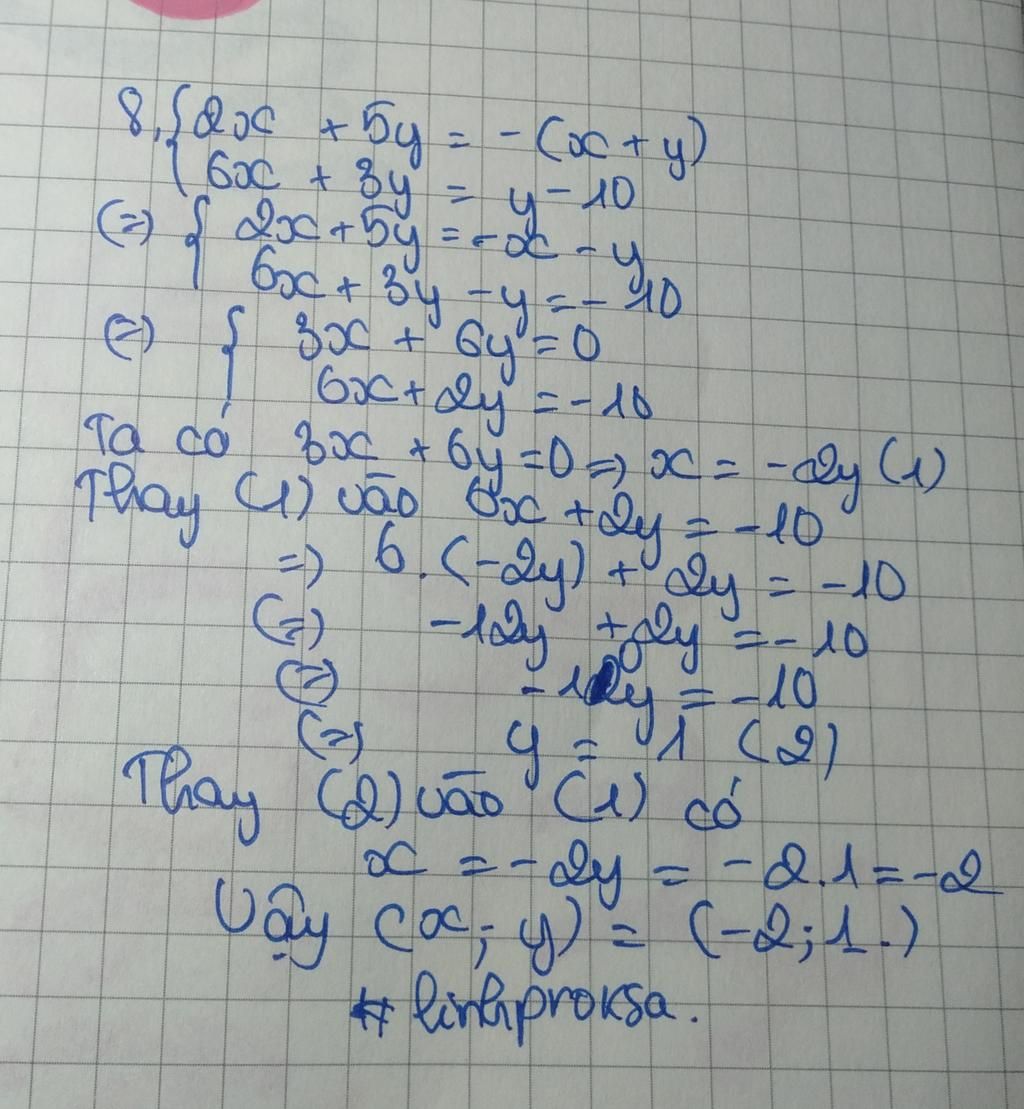 8, { 2x + 5y = -(x + y)
6x + 3y = y - 10
(=) { 2x + 5y = -x - y
6x + 3y - y = -10
(=) { 3x + 6y = 0
6x + 2y = -10
Ta có 3x + 6y = 0 => x = -2y (1)
Thay (1) vào 6x + 2y = -10
=> 6.(-2y) + 2y = -10
(=) -12y + 2y = -10
(=) -10y = -10
(=) y = 1 (2)
Thay (2) vào (1) có
x = -2y = -2.1 = -2
Vậy (x; y) = (-2; 1.)
# linhproksa.